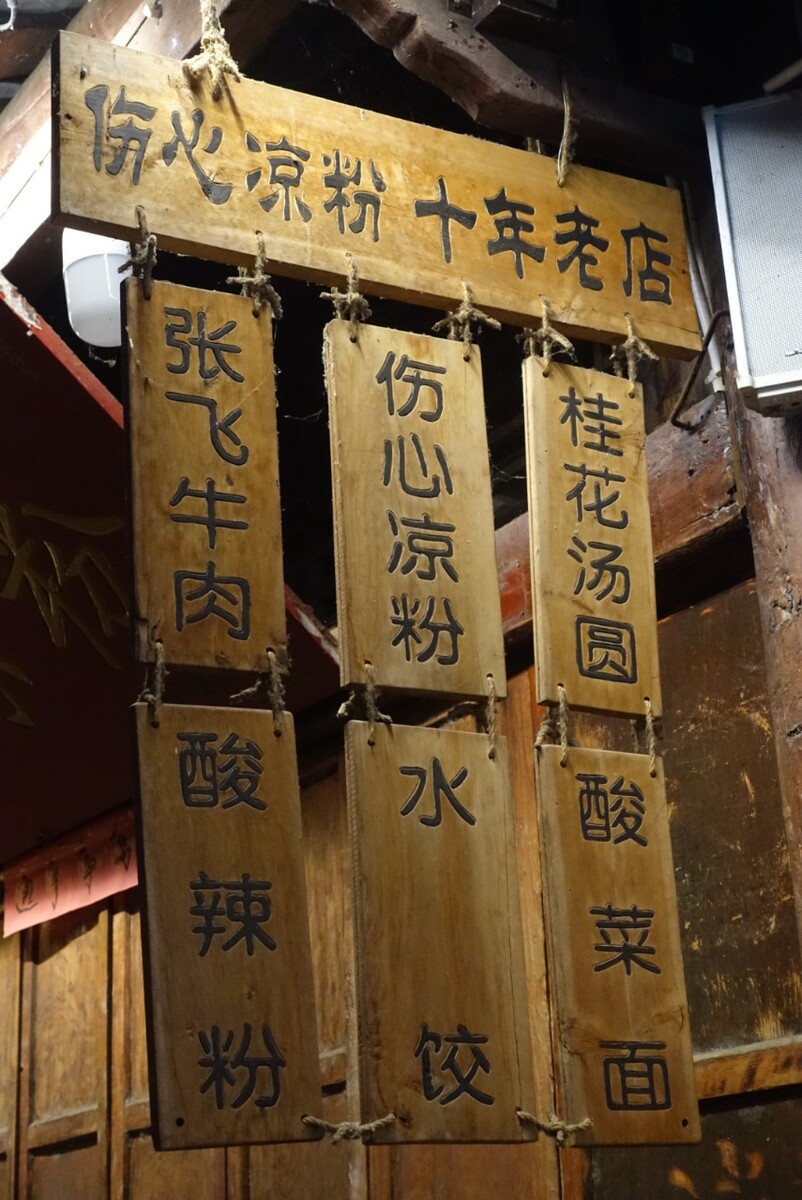 伤心凉粉 十年老店
张飞牛肉
伤心凉粉
桂花汤圆
酸辣粉
水饺
酸菜面